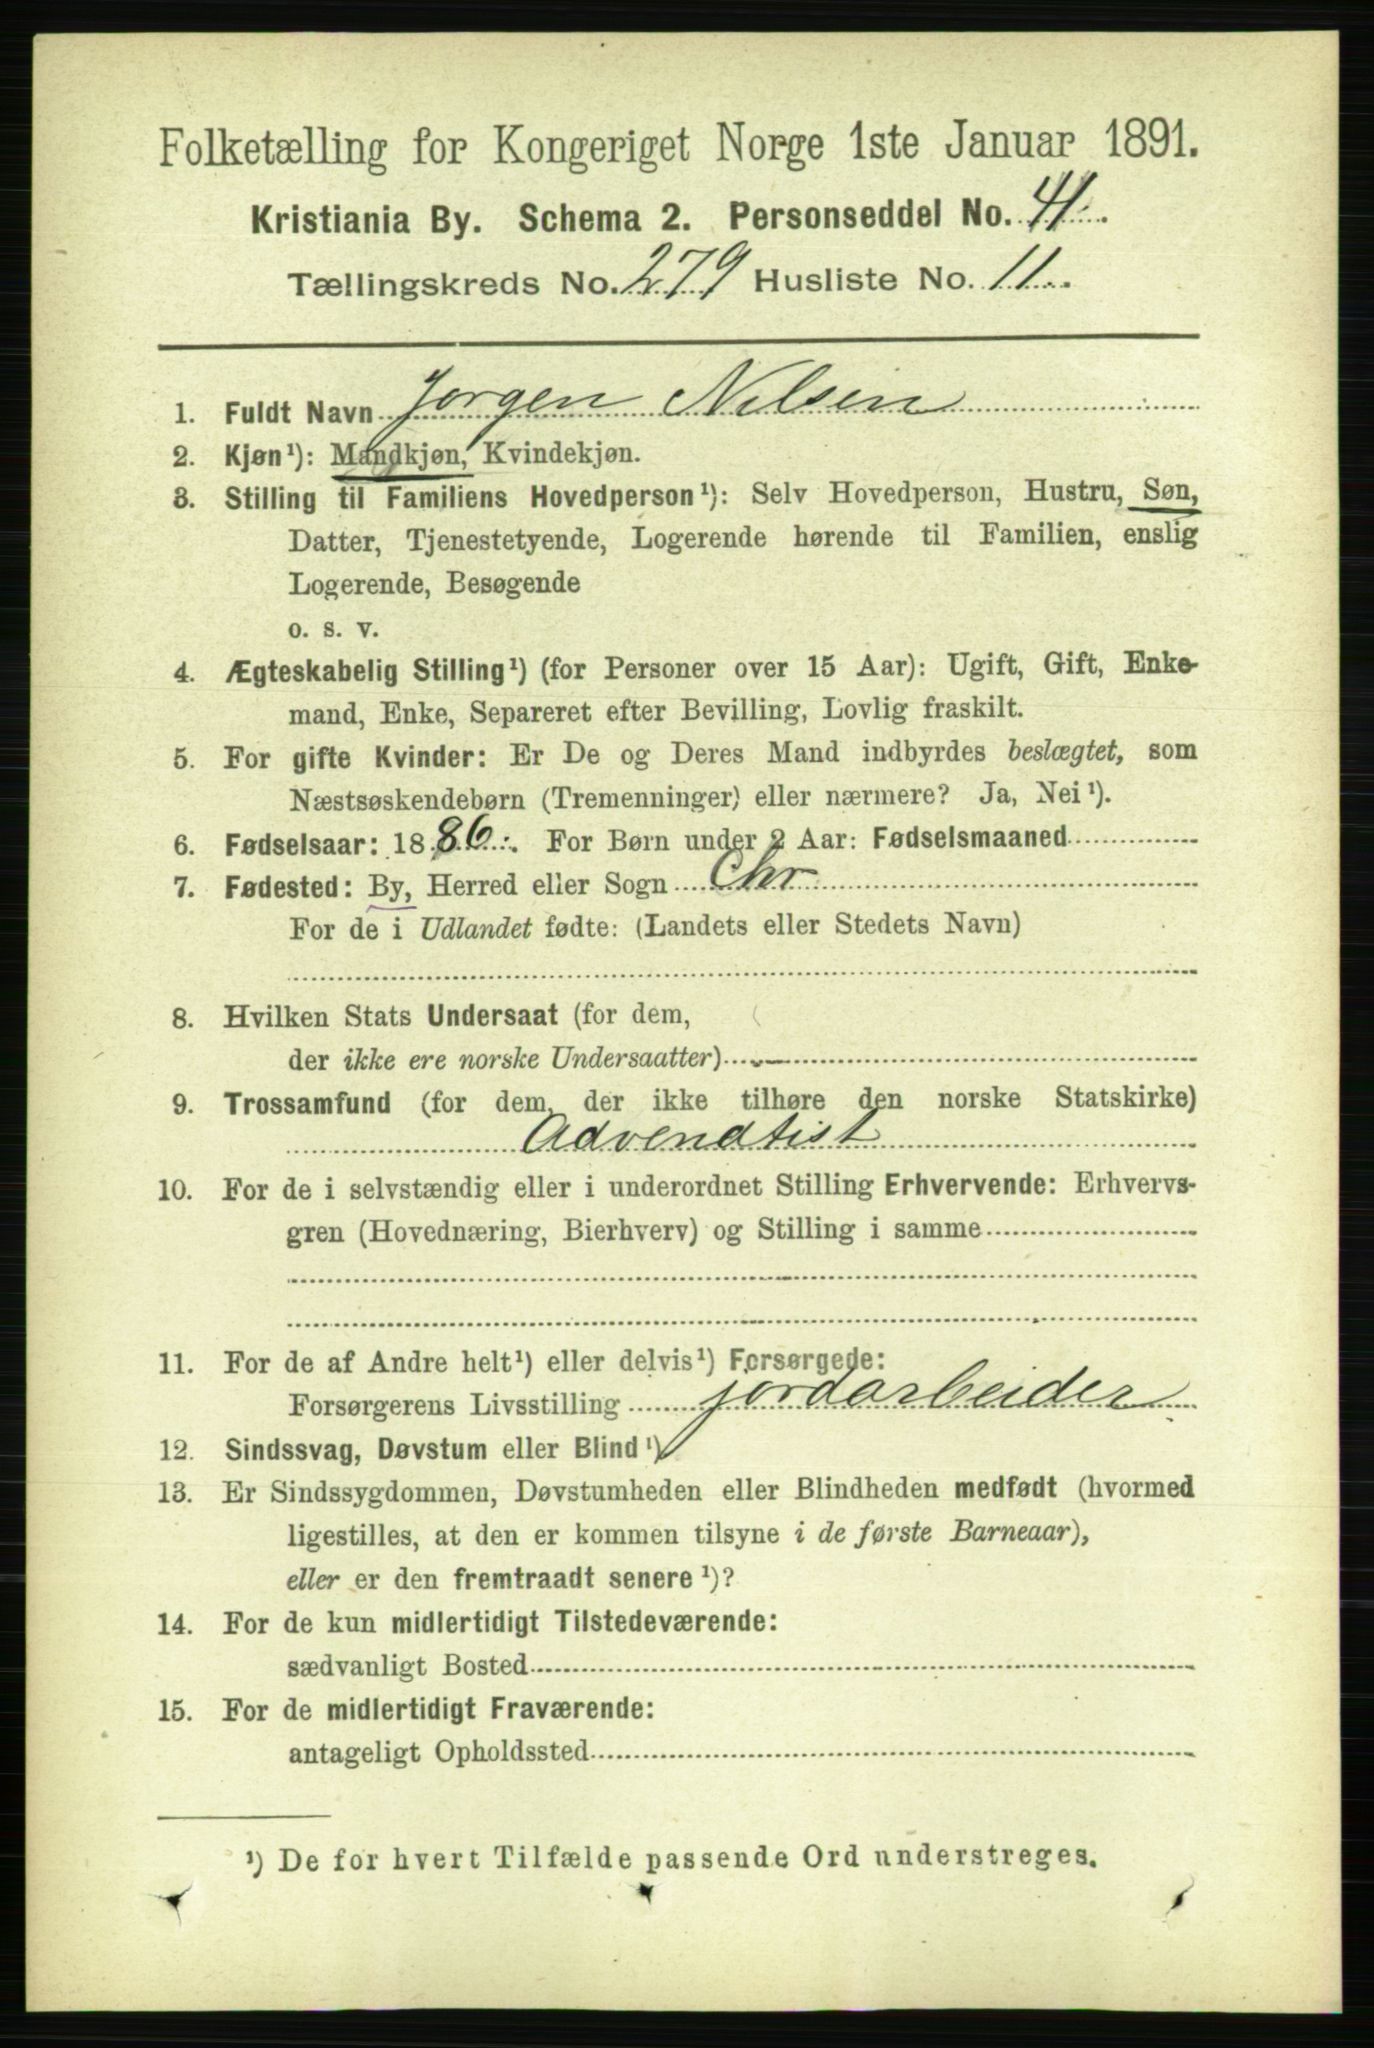 Folketælling for Kongeriget Norge 1ste Januar 1891.
Kristiania By. Schema 2. Personseddel No. 41
Tællingskreds No. 279 Husliste No. 11
1. Fuldt Navn Jorgen Nilsen
2. Kjøn¹): Mandkjøn, Kvindekjøn.
3. Stilling til Familiens Hovedperson¹): Selv Hovedperson, Hustru, Søn,
Datter, Tjenestetyende, Logerende hørende til Familien, enslig
Logerende, Besøgende
o. s. v.
4. Ægteskabelig Stilling¹) (for Personer over 15 Aar): Ugift, Gift, Enke-
mand, Enke, Separeret efter Bevilling, Lovlig fraskilt.
5. For gifte Kvinder: Er De og Deres Mand indbyrdes beslægtet, som
Næstsøskendebørn (Tremenninger) eller nærmere? Ja, Nei¹).
6. Fødselsaar: 1886. For Børn under 2 Aar: Fødselsmaaned
7. Fødested: By, Herred eller Sogn Chr
For de i Udlandet fødte: (Landets eller Stedets Navn)
8. Hvilken Stats Undersaat (for dem,
der ikke ere norske Undersaatter)
9. Trossamfund (for dem, der ikke tilhøre den norske Statskirke)
Advendtist
10. For de i selvstændig eller i underordnet Stilling Erhvervende: Erhvervs-
gren (Hovednæring, Bierhverv) og Stilling i samme
11. For de af Andre helt¹) eller delvis¹) Forsørgede:
Forsørgerens Livsstilling jordarbeider
12. Sindssvag, Døvstum eller Blind¹)
13. Er Sindssygdommen, Døvstumheden eller Blindheden medfødt (hvormed
ligestilles, at den er kommen tilsyne i de første Barneaar),
eller er den fremtraadt senere¹)?
14. For de kun midlertidigt Tilstedeværende:
sædvanligt Bosted
15. For de midlertidigt Fraværende:
antageligt Opholdssted
¹) De for hvert Tilfælde passende Ord understreges.